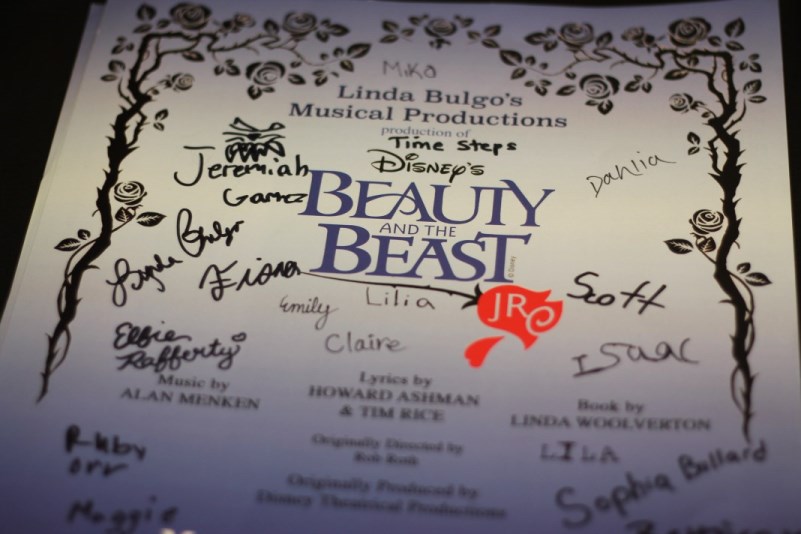 Miko
Linda Bulgo's
Musical Productions
production of
Time Steps
Jeremiah
DISNEY'S
Dahlia
BEAUTY
AND THE
BEAST
© Disney
JR
Linda Bulgo
Fiona
Emily
Lilia
Scott
Claire
Isaac
Ellie
Rafferty
Music by
ALAN MENKEN
Lyrics by
HOWARD ASHMAN
& TIM RICE
Book by
LINDA WOOLVERTON
Ruby
orr
Originally Directed by
Rob Roth
LILA
Sophia Bullard
Originally Produced by
Disney Theatrical Productions
Maggie